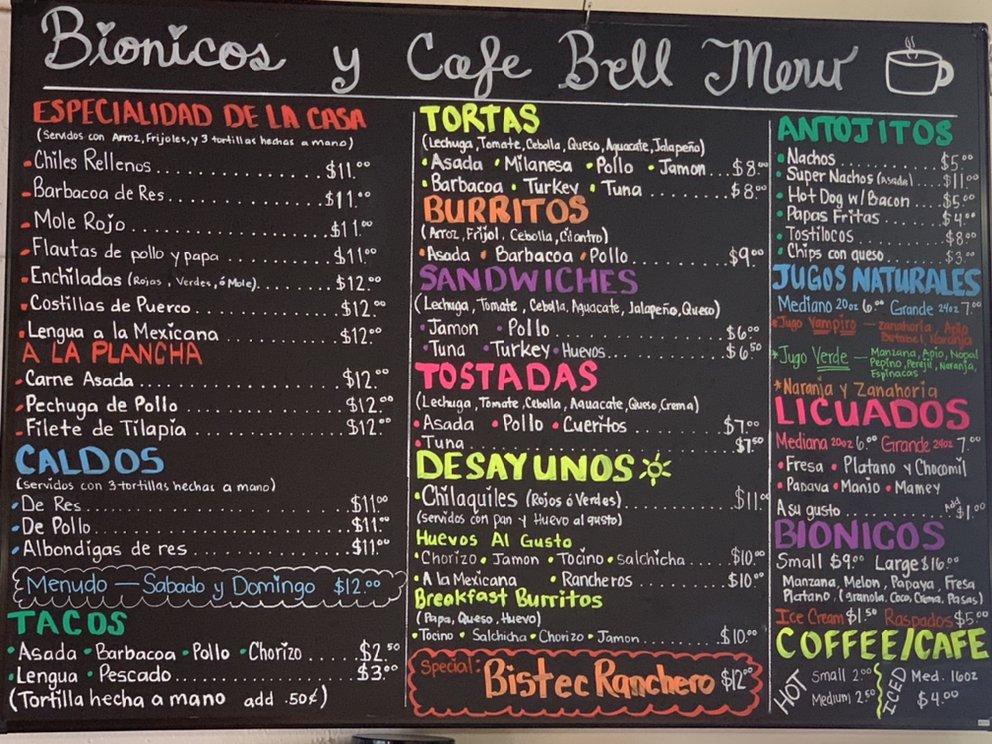 Bionicos y Cafe Bell Menu
ESPECIALIDAD DE LA CASA
(Servidos con Arroz, Frijoles, y 3 tortillas hechas a mano)
Chiles Rellenos $11.00
Barbacoa de Res $11.00
Mole Rojo $11.00
Flautas de pollo y papa $11.00
Enchiladas (Rojas, Verdes, ó Mole) $12.00
Costillas de Puerco $12.00
Lengua a la Mexicana $12.00
A LA PLANCHA
Carne Asada $12.00
Pechuga de Pollo $12.00
Filete de Tilapia $12.00
CALDOS
(servidos con 3 tortillas hechas a mano)
De Res $11.00
De Pollo $11.00
Albondigas de res $11.00
Menudo — Sabado y Domingo $12.00
TACOS
Asada • Barbacoa • Pollo • Chorizo $2.50
Lengua • Pescado $3.00
(Tortilla hecha a mano add .50¢)
TORTAS
(Lechuga, Tomate, Cebolla, Queso, Aguacate, Jalapeño)
Asada • Milanesa • Pollo • Jamon $8.00
Barbacoa • Turkey • Tuna $8.00
BURRITOS
(Arroz, Frijol, Cebolla, Cilantro)
Asada • Barbacoa • Pollo $9.00
SANDWICHES
(Lechuga, Tomate, Cebolla, Aguacate, Jalapeño, Queso)
Jamon • Pollo $6.00
Tuna • Turkey • Huevos $6.50
TOSTADAS
(Lechuga, Tomate, Cebolla, Aguacate, Queso, Crema)
Asada • Pollo • Cueritos $7.00
Tuna $7.50
DESAYUNOS
Chilaquiles (Rojos ó Verdes) $11.00
(servidos con pan y Huevo al gusto)
Huevos Al Gusto
Chorizo • Jamon • Tocino • salchicha $10.00
A la Mexicana • Rancheros $10.00
Breakfast Burritos
(Papa, Queso, Huevo)
Tocino • Salchicha • Chorizo • Jamon $10.00
Special: Bistec Ranchero $12.00
ANTOJITOS
Nachos $5.00
Super Nachos (Asada) $11.00
Hot Dog w/ Bacon $5.00
Papas Fritas $4.00
Tostilocos $8.00
Chips con queso $3.00
JUGOS NATURALES
Mediano 20oz 6.00 Grande 24oz 7.00
*Jugo Vampiro — Zanahoria, Apio
Betabel, Naranja
*Jugo Verde — Manzana, Apio, Nopal
Pepino, Perejil, Naranja,
Espinacas
*Naranja y Zanahoria
LICUADOS
Mediana 20oz 6.00 Grande 24oz 7.00
• Fresa • Platano y Chocomil
• Papaya • Manjo • Mamey
A su gusto Add $1.00
BIONICOS
Small $9.00 Large $16.00
Manzana, Melon, Papaya, Fresa
Platano, (Granola, Coco, Crema, Pasas)
Ice Cream $1.50 Raspados $5.00
COFFEE/CAFE
HOT Small 2.00 ICED Med. 16oz
Medium 2.50 $4.00